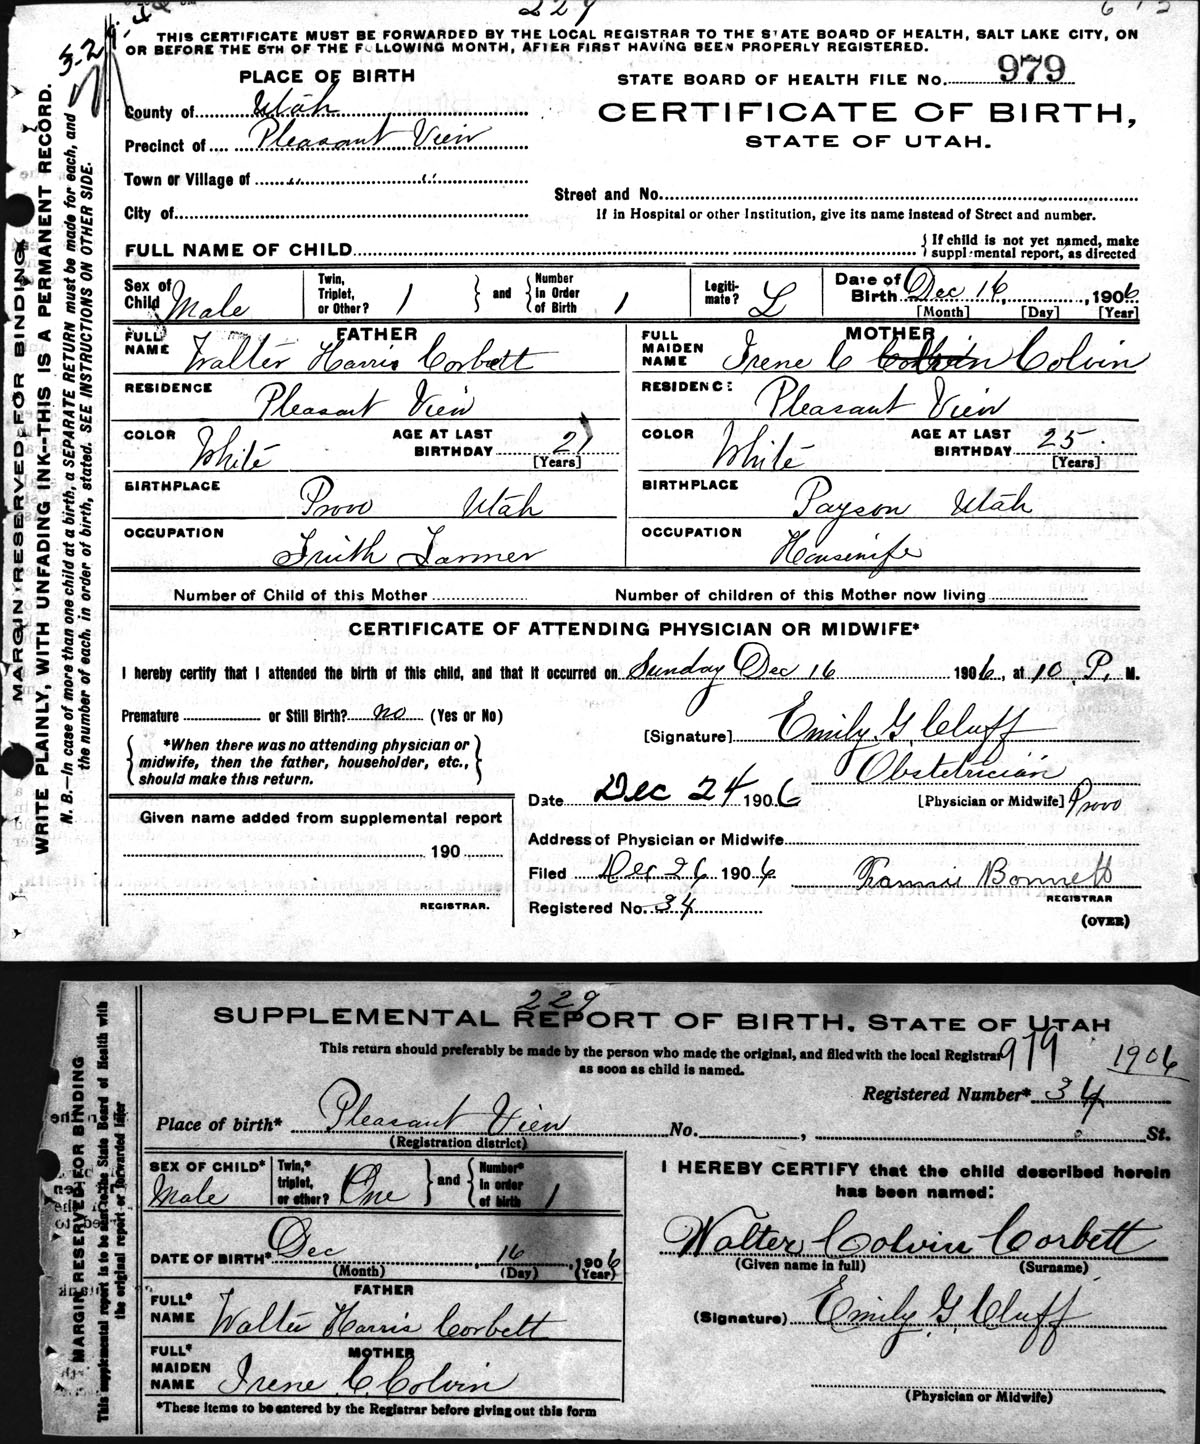 229
THIS CERTIFICATE MUST BE FORWARDED BY THE LOCAL REGISTRAR TO THE STATE BOARD OF HEALTH, SALT LAKE CITY, ON
OR BEFORE THE 5TH OF THE FOLLOWING MONTH, AFTER FIRST HAVING BEEN PROPERLY REGISTERED.
MARGIN RESERVED FOR BINDING
WRITE PLAINLY, WITH UNFADING INK--THIS IS A PERMANENT RECORD.
N. B.—In case of more than one child at a birth, a SEPARATE RETURN must be made for each, and
the number of each, in order of birth, stated. SEE INSTRUCTIONS ON OTHER SIDE.
PLACE OF BIRTH
STATE BOARD OF HEALTH FILE No. 979
County of Utah
CERTIFICATE OF BIRTH,
Precinct of Pleasant View
STATE OF UTAH.
Town or Village of " "
Street and No.
City of
If in Hospital or other Institution, give its name instead of Street and number.
FULL NAME OF CHILD
If child is not yet named, make
supplemental report, as directed
Sex of Child Male
Twin, Triplet, or Other? 1 and Number in Order of Birth 1
Legitimate? L
Date of Birth Dec 16, 1906
[Month] [Day] [Year]
FATHER
FULL NAME Walter Harris Corbett
MOTHER
FULL MAIDEN NAME Irene C Colvin
RESIDENCE Pleasant View
RESIDENCE: Pleasant View
COLOR White AGE AT LAST BIRTHDAY 21 [Years]
COLOR White AGE AT LAST BIRTHDAY 25 [Years]
BIRTHPLACE Provo Utah
BIRTHPLACE Payson Utah
OCCUPATION Fruith Farmer
OCCUPATION Housewife
Number of Child of this Mother
Number of children of this Mother now living
CERTIFICATE OF ATTENDING PHYSICIAN OR MIDWIFE*
I hereby certify that I attended the birth of this child, and that it occurred on Sunday Dec 16 1906, at 10 P. M.
Premature or Still Birth? no (Yes or No)
[Signature] Emily G. Cluff
*When there was no attending physician or
midwife, then the father, householder, etc.,
should make this return.
Obstetrician
Date Dec 24 1906 [Physician or Midwife] Provo
Given name added from supplemental report
190
REGISTRAR.
Address of Physician or Midwife
Filed Dec 26 1906 Fannie Bonnett
REGISTRAR
Registered No. 34
(OVER)
229
SUPPLEMENTAL REPORT OF BIRTH, STATE OF UTAH
This return should preferably be made by the person who made the original, and filed with the local Registrar
as soon as child is named.
979 1906
MARGIN RESERVED FOR BINDING
This supplemental report is to be sent to the State Board of Health with
the original report or forwarded later
Registered Number* 34
Place of birth* Pleasant View No. , St.
(Registration district)
SEX OF CHILD* Male
Twin,* triplet, or other? One and Number* in order of birth 1
DATE OF BIRTH* Dec 16, 1906
(Month) (Day) (Year)
FATHER
FULL* NAME Walter Harris Corbett
MOTHER
FULL* MAIDEN NAME Irene C. Colvin
*These items to be entered by the Registrar before giving out this form
I HEREBY CERTIFY that the child described herein
has been named:
Walter Colvin Corbett
(Given name in full) (Surname)
(Signature) Emily G. Cluff
(Physician or Midwife)